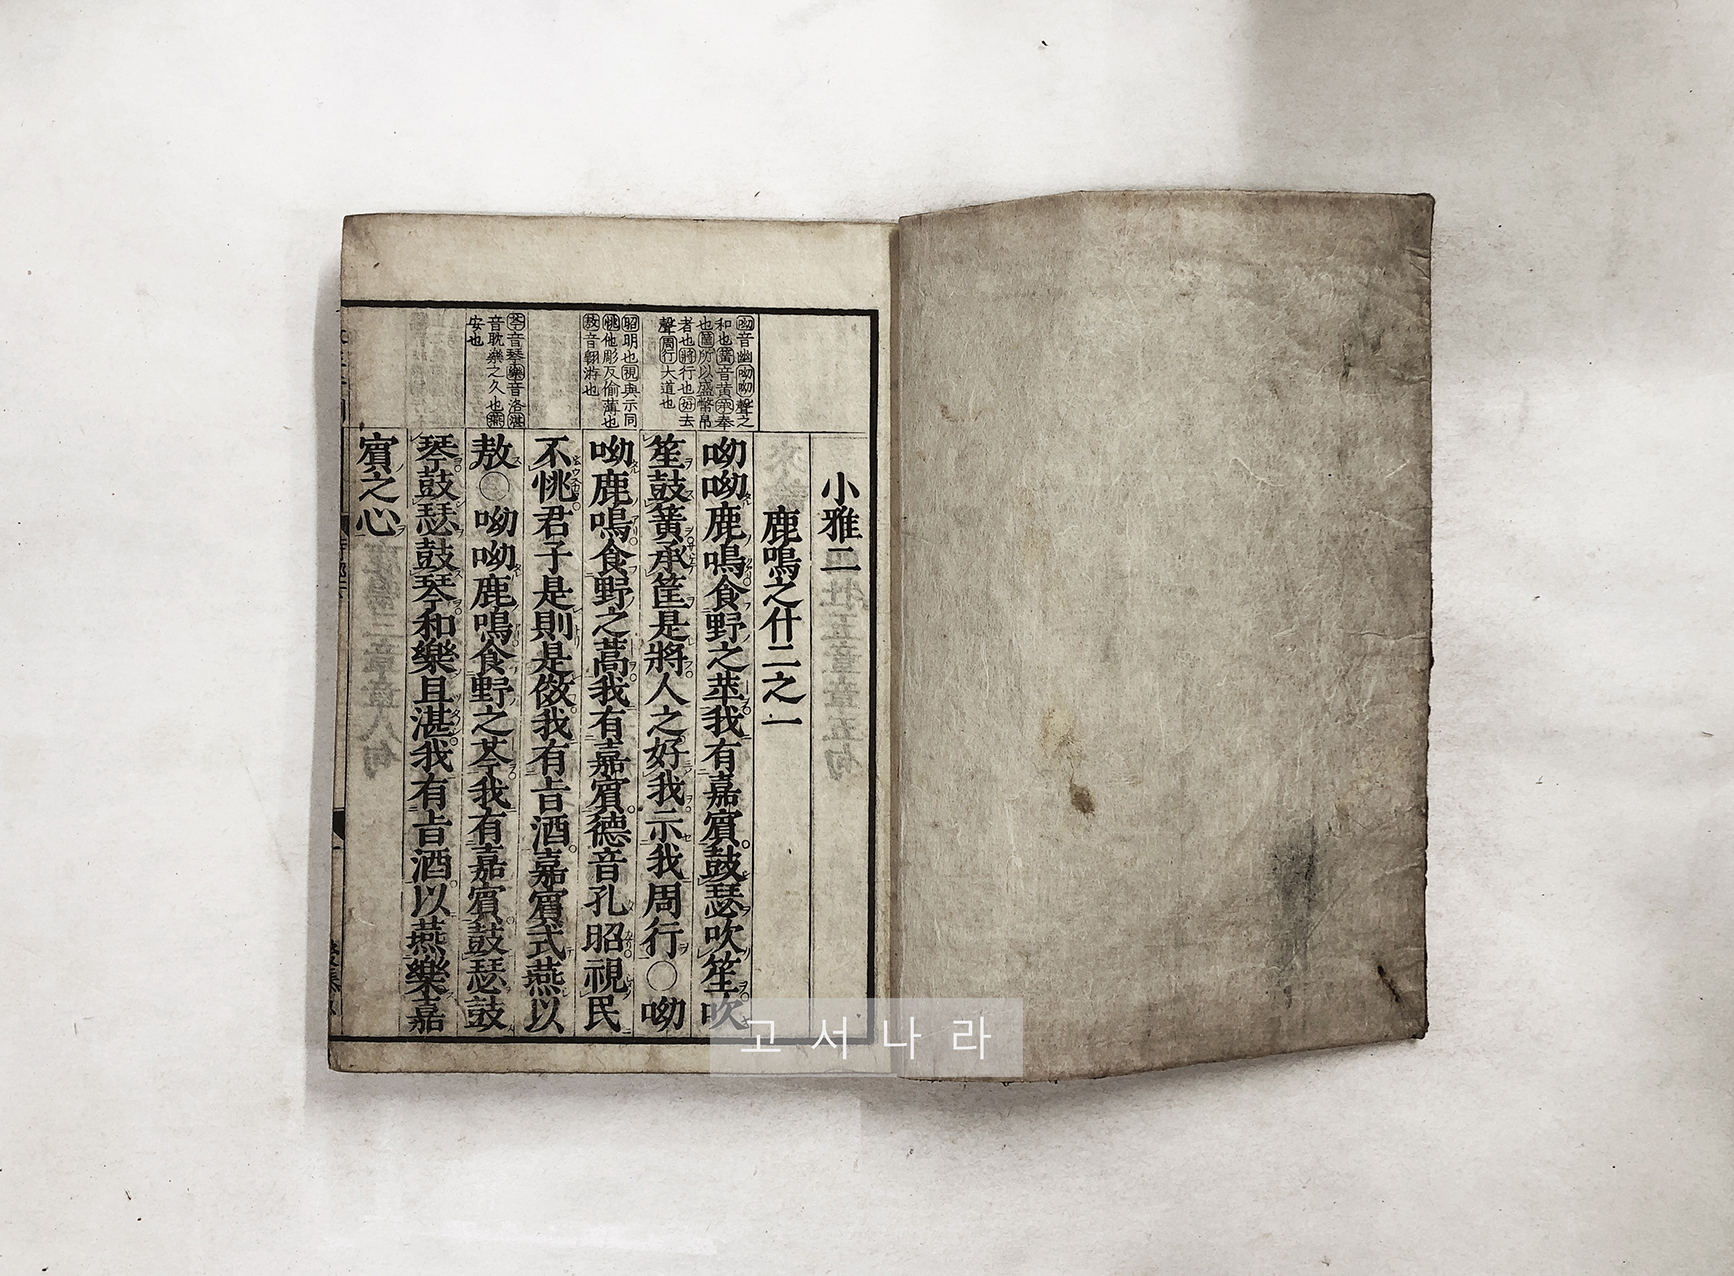 小雅二
鹿鳴之什二之一
呦呦鹿鳴食野之苹我有嘉賔鼓瑟吹笙吹
笙鼓簧承筐是將人之好我示我周行〇呦
呦鹿鳴食野之蒿我有嘉賔德音孔昭視民
不恌君子是則是傚我有旨酒嘉賔式燕以
敖〇呦呦鹿鳴食野之芩我有嘉賔鼓瑟鼓
琴鼓瑟鼓琴和樂且湛我有旨酒以燕樂嘉
賔之心
呦音幽呦呦聲之
和也簧音黄承奉
也筐所以盛幣帛
者也將行也好去
聲周行大道也
昭明也視與示同
恌他彫反偷薄也
敖音翺游也
芩音琴樂音洛湛
音耽樂之久也燕
安也
고서나라